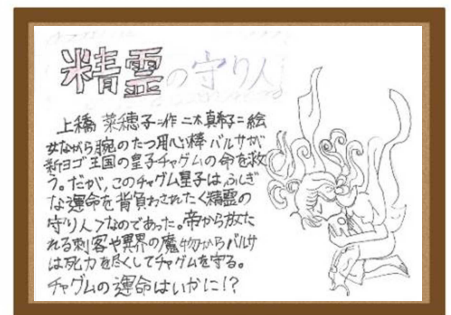 精霊の守り人
上橋 菜穂子=作 二木真希子=絵
女ながら腕のたつ用心棒 バルサが
新ヨゴ王国の皇子チャグムの命を救
う。だが、このチャグム皇子は、ふしぎ
な運命を背負わされたく精霊の
守り人>なのであった。帝から放た
れる刺客や異界の魔物からバルサ
は死力を尽くしてチャグムを守る。
チャグムの運命はいかに!?